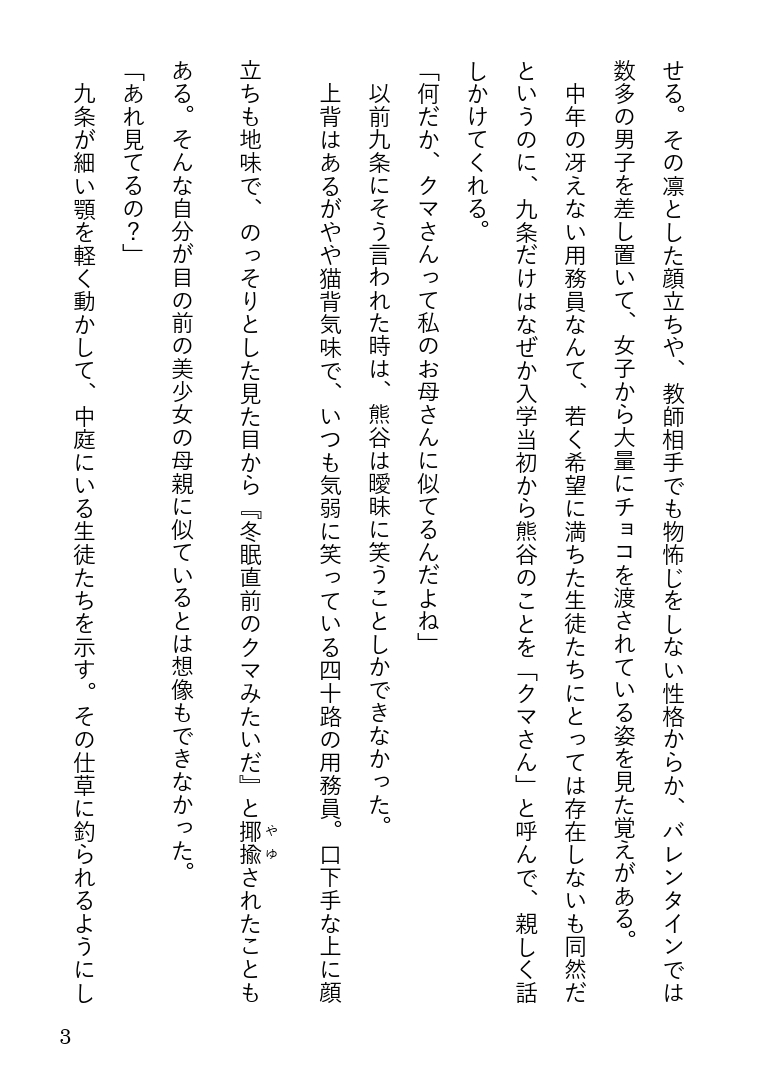 せる。その凛とした顔立ちや、教師相手でも物怖じをしない性格からか、バレンタインでは
数多の男子を差し置いて、女子から大量にチョコを渡されている姿を見た覚えがある。
　中年の冴えない用務員なんて、若く希望に満ちた生徒たちにとっては存在しないも同然だ
というのに、九条だけはなぜか入学当初から熊谷のことを「クマさん」と呼んで、親しく話
しかけてくれる。
「何だか、クマさんって私のお母さんに似てるんだよね」
　以前九条にそう言われた時は、熊谷は曖昧に笑うことしかできなかった。
　上背はあるがやや猫背気味で、いつも気弱に笑っている四十路の用務員。口下手な上に顔
立ちも地味で、のっそりとした見た目から『冬眠直前のクマみたいだ』と揶揄されたことも
やゆ
ある。そんな自分が目の前の美少女の母親に似ているとは想像もできなかった。
「あれ見てるの？」
　九条が細い顎を軽く動かして、中庭にいる生徒たちを示す。その仕草に釣られるようにし
3